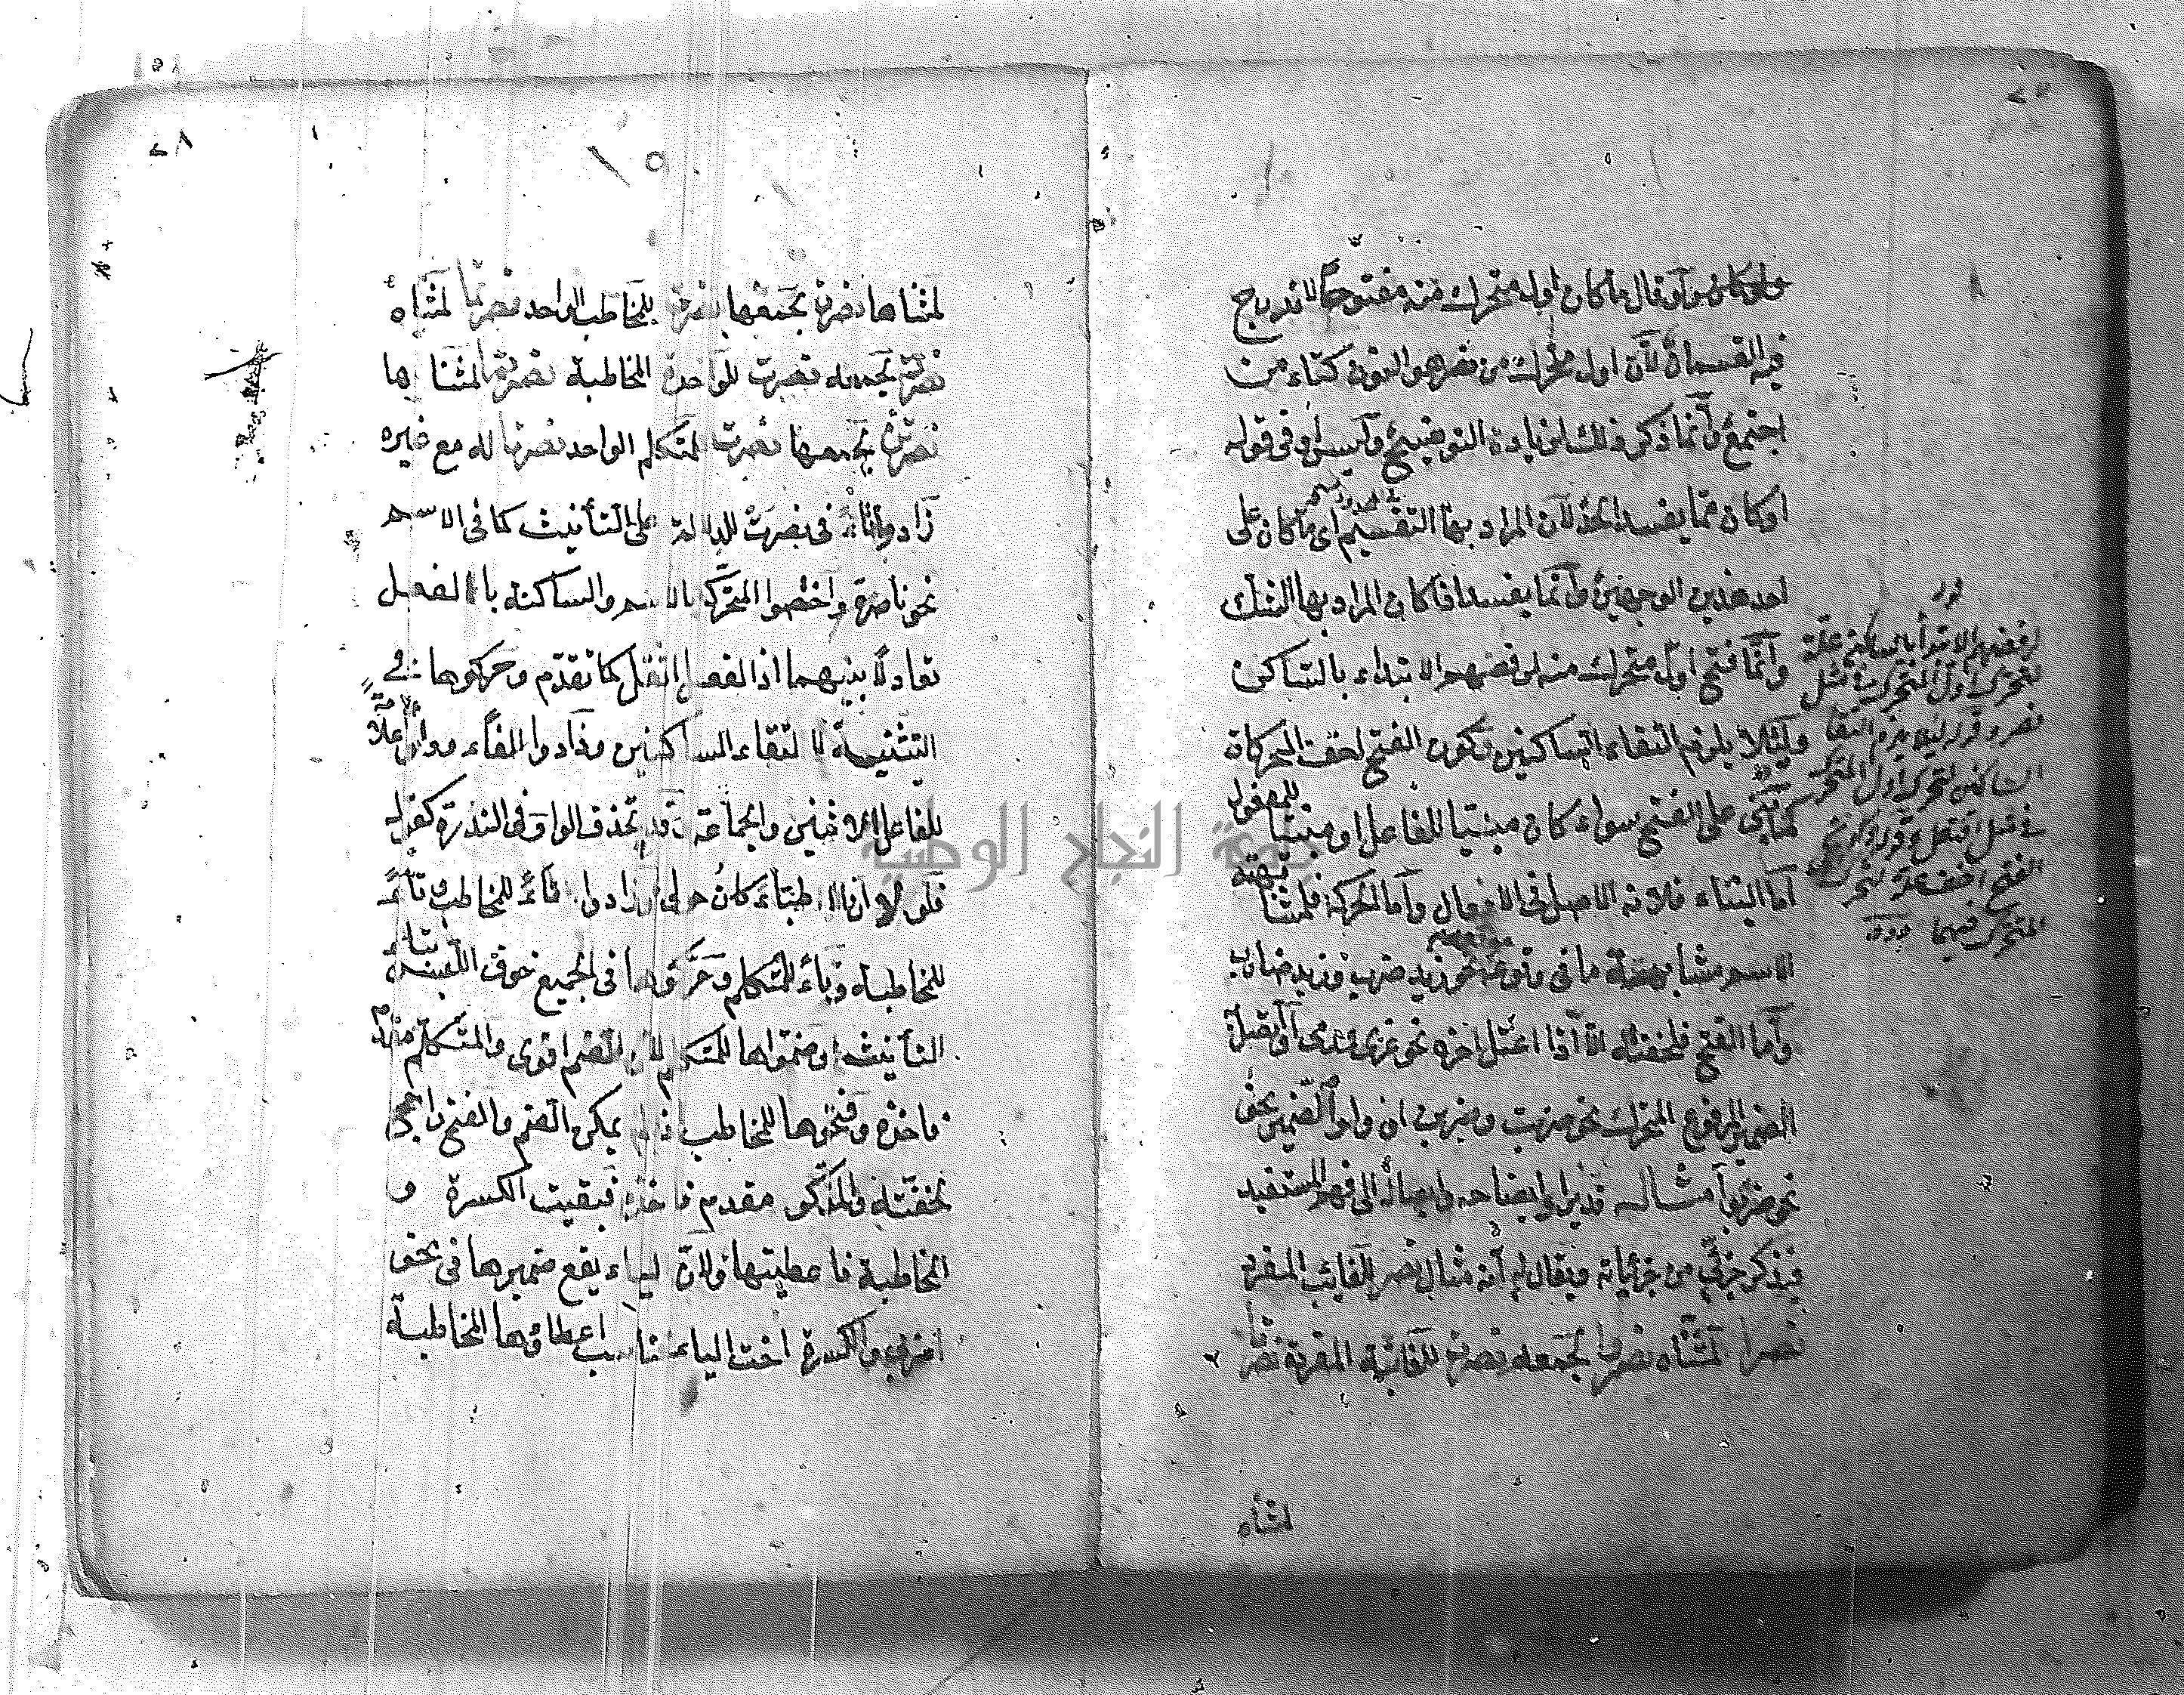 ولو كان وأو قال ما كان أول متحرك منه مفتوحا لاندرج
فيه القسمان لأن أول متحرك من نصر هو النون كتاء من
اجتمع وانما ذكر ذلك لزيادة التوضيح وليس او في قوله
او كان مما يفسد الحد لان المراد بها التقسيم اى ما كان على
احد هذين الوجهين وانما يفسد اذا كان المراد بها الشك
وانما فتح اول متحرك منه لرفضهم الابتداء بالساكن
ولئلا يلزم التقاء الساكنين وكون الفتح اخف الحركات
كما بني على الفتح سواء كان مبنيا للفاعل او مبنيا للمفعول
اما البناء فلانه الاصل في الافعال وأما الحركة فلمشابهته
الاسم مشابهة ما في وقوعه موقعه نحو زيد ضرب وزيد ضارب
وأما الفتح فلخفته الا اذا اعتل اخره نحو غزى ورمى أو اتصل
الضمير المرفوع المتحرك نحو ضربت وضربن او واو الضمير نحو
نحو ضربوا مثاله قد يراد ايضاحه وايصاله الى فهم المستفيد
فيذكر جزئي من جزئياته ويقال له أنه مثال نصر للغائب المفرد
نصرا لمثناه نصروا لجمعه نصرت للغائبة المفردة نصرتا
لمثناه
نور
لرفضهم الابتدأ بالساكن علة
لتحريك اول المتحرك في مثل
نصر وقوله لئلا يلزم التقا
الساكنين لتحرك اول المتحرك
في مثل افتعل وقوله وكون
الفتح اخف علة لتحرك
المتحرك فيهما
٢٨
١٥
لمثناها نصرن لجمعها نصرت للمخاطب الواحد نصرتما لمثناه
نصرتم لجمعه نصرت للواحدة المخاطبة نصرتما لمثناها
نصرتن لجمعها نصرت لمتكلم الواحد نصرنا له مع غيره
زادوا تاء في نصرت للدلالة على التأنيث كما في الاسم
نحو ناصرة واختصوا المتحركة بالاسم والساكنة بالفعل
تعادلا بينهما اذ الفعل اثقل كما تقدم وحركوها في
التثنية لالتقاء الساكنين وزادوا الفاء وواوا علامة
للفاعل الاثنين والجماعة وقد تحذف الواو في الندرة كقوله
فلو ان الاطباء كان حولي وزادوا تاء للمخاطب تاء
للمخاطبة وتاء للمتكلم وحركوها في الجميع خوف اللبس بتاء
التأنيث وضموها للمتكلم لان الضم اقوى والمتكلم مقدم
فاخذه وفتحوها للمخاطب اذ لم يمكن الضم والفتح راجح
لخفته والمذكر مقدم فاخذه فبقيت الكسرة و
المخاطبة فاعطيتها ولان الياء يقع ضميرها في نحو
اضربي والكسرة اخت الياء فناسب اعطاؤها المخاطبة